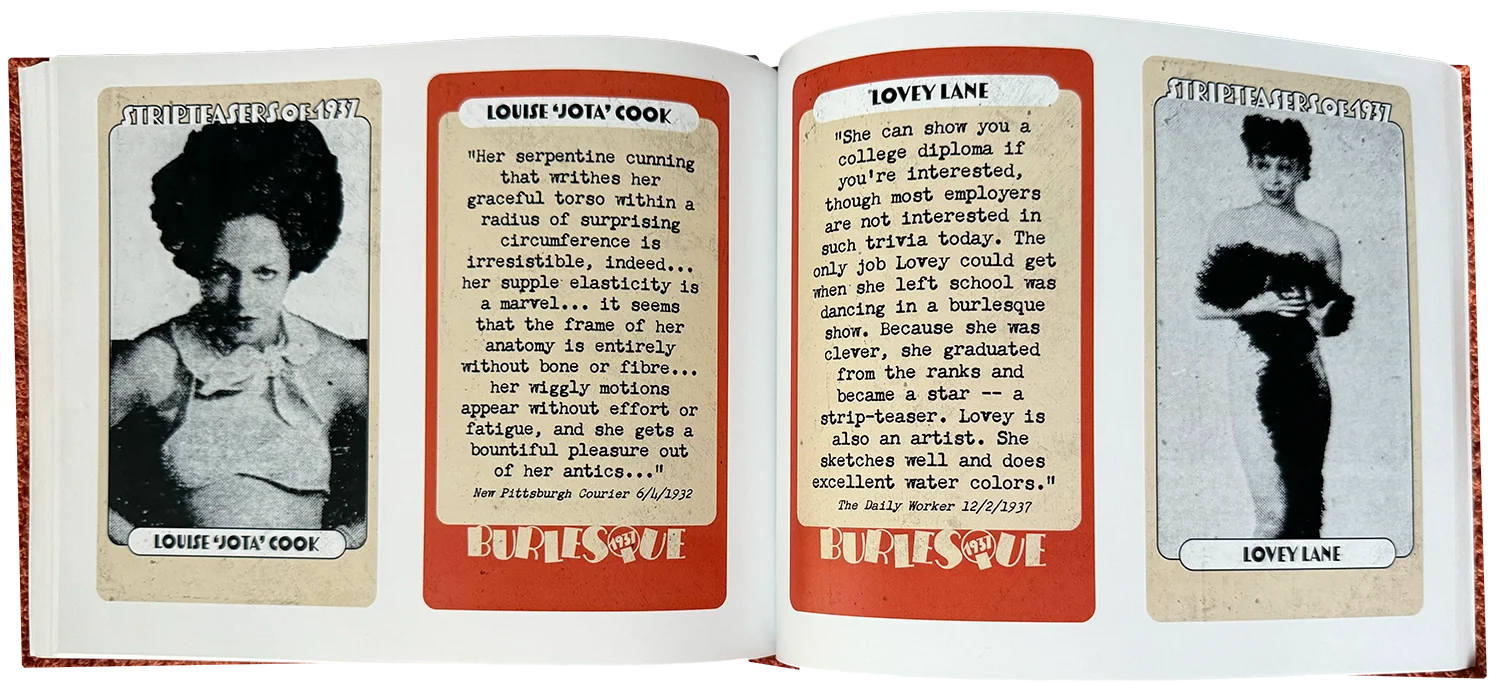 STRIPTEASERS OF 1937
LOUISE 'JOTA' COOK
LOUISE 'JOTA' COOK
"Her serpentine cunning
that writhes her
graceful torso within a
radius of surprising
circumference is
irresistible, indeed...
her supple elasticity is
a marvel... it seems
that the frame of her
anatomy is entirely
without bone or fibre...
her wiggly motions
appear without effort or
fatigue, and she gets a
bountiful pleasure out
of her antics..."
New Pittsburgh Courier 6/4/1932
BURLESQUE
1937
LOVEY LANE
"She can show you a
college diploma if
you're interested,
though most employers
are not interested in
such trivia today. The
only job Lovey could get
when she left school was
dancing in a burlesque
show. Because she was
clever, she graduated
from the ranks and
became a star -- a
strip-teaser. Lovey is
also an artist. She
sketches well and does
excellent water colors."
The Daily Worker 12/2/1937
BURLESQUE
1937
STRIPTEASERS OF 1937
LOVEY LANE